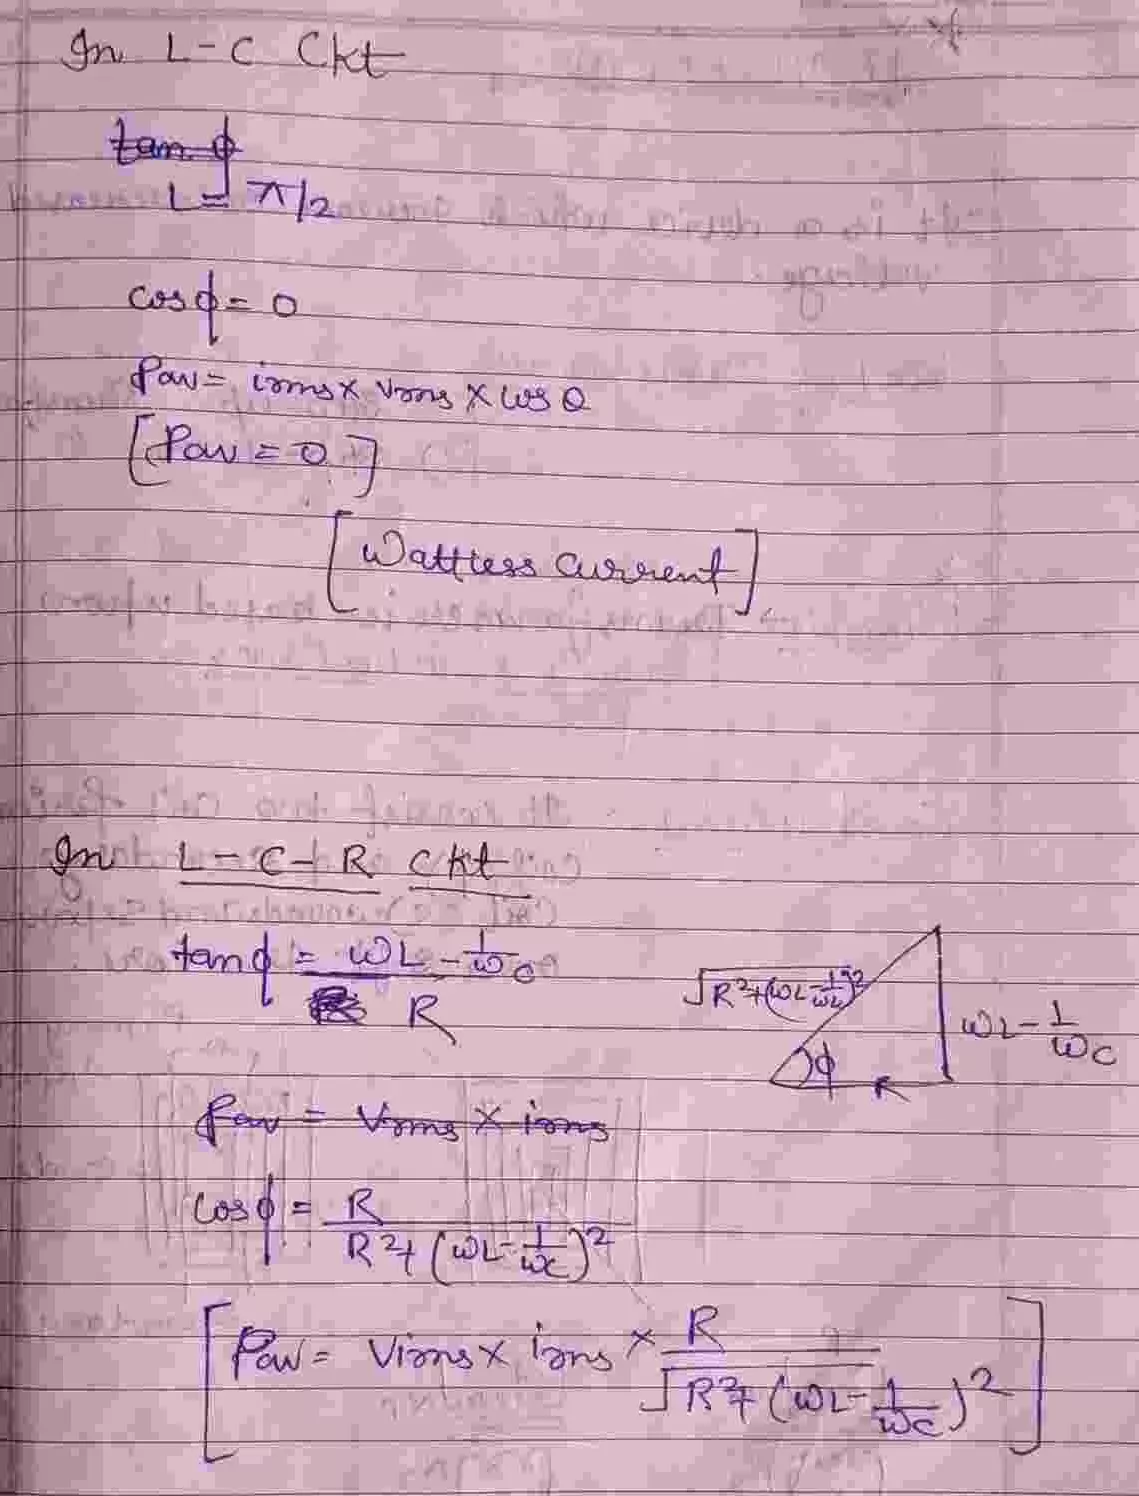 In L-C Ckt
tan ϕ
L = π/2
cosϕ = 0
Pav = irms x Vrms x cos θ
[Pav = 0]
[Wattless Current]
In L-C-R Ckt
tanϕ = ωL - 1/ωC
R
√R²+(ωL-1/ωL)²
ωL - 1/ωC
ϕ
R
Pav = Vrms x irms
cosϕ = R
R²+(ωL-1/ωC)²
[Pav = Virms x irms x R
√R²+(ωL-1/ωC)²]